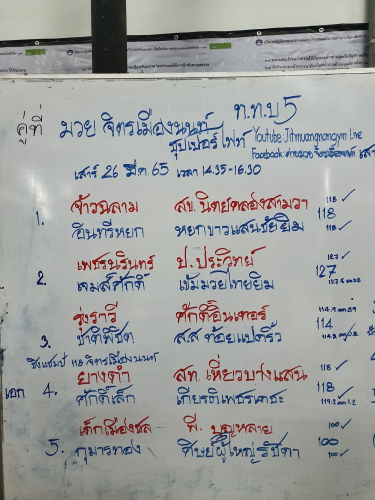 ท.ท.บ 5
คู่ที่ มวย จิตรเมืองนนท์
ซุปเปอร์ไฟท์ Youtube: Jitmuangnongym Live
Facebook:
เสาร์ 26 มีค. 65 เวลา 14.35-16.30
1. จ้าวฉลาม สข. นิตย์คลองสามวา 118 ✓
118
อินทรีหยก หยกขาวแสนชัยยิม 118 ✓
2. เพชรนรินทร์ ป. ประวิทย์ 127 ✓
127
เลมส์ศักดิ์ เข้มมวยไทยยิม
3. รุ่งราวี ศักดิ์อินเตอร์
114
ชาติพิชิต ส.ส. ต้อยแปดริ้ว
ชิงแชมป์ 118 จิตรเมืองนนท์
เอก 4. ยางดำ สท. เหี่ยวบางแสน 118 ✓
118
ศักดิ์เล็ก เกียรติเพชรเดชะ
5. เด็กเมืองชล พี. บุญหลาย 100 ✓
100
กุมารทอง ศิษย์ผู้ใหญ่รัชดา 100 ✓